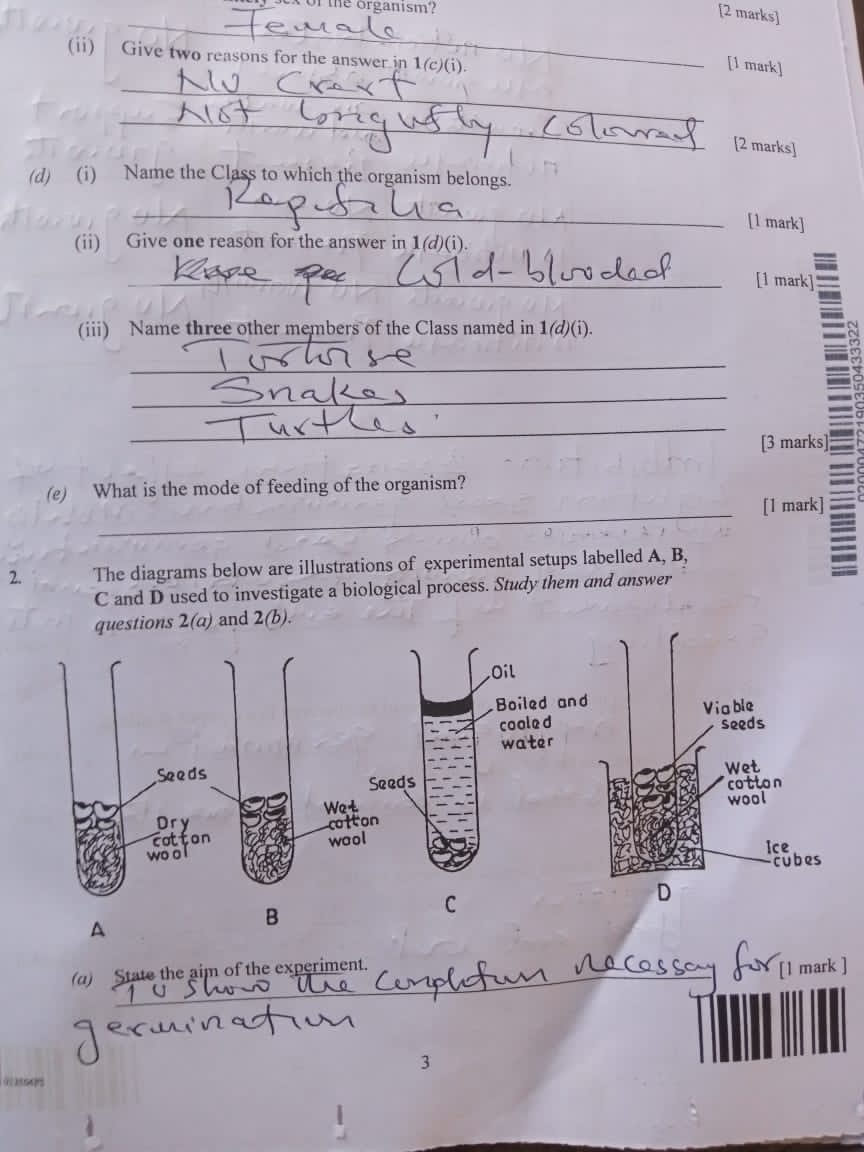 of the organism?
[2 marks]
Female
(ii) Give two reasons for the answer in 1(c)(i).
[1 mark]
No Crest
Not brightly coloured
[2 marks]
(d) (i) Name the Class to which the organism belongs.
Reptilia
[1 mark]
(ii) Give one reason for the answer in 1(d)(i).
Cold-blooded
[1 mark]
(iii) Name three other members of the Class named in 1(d)(i).
Tortoise
Snakes
Turtles
[3 marks]
(e) What is the mode of feeding of the organism?
[1 mark]
2. The diagrams below are illustrations of experimental setups labelled A, B,
C and D used to investigate a biological process. Study them and answer
questions 2(a) and 2(b).
Oil
Boiled and
cooled
water
Viable
seeds
Seeds
Seeds
Wet
cotton
wool
Dry
cotton
wool
Wet
cotton
wool
Ice
cubes
A
B
C
D
(a) State the aim of the experiment.
To show the necessay for
[1 mark ]
germination
3